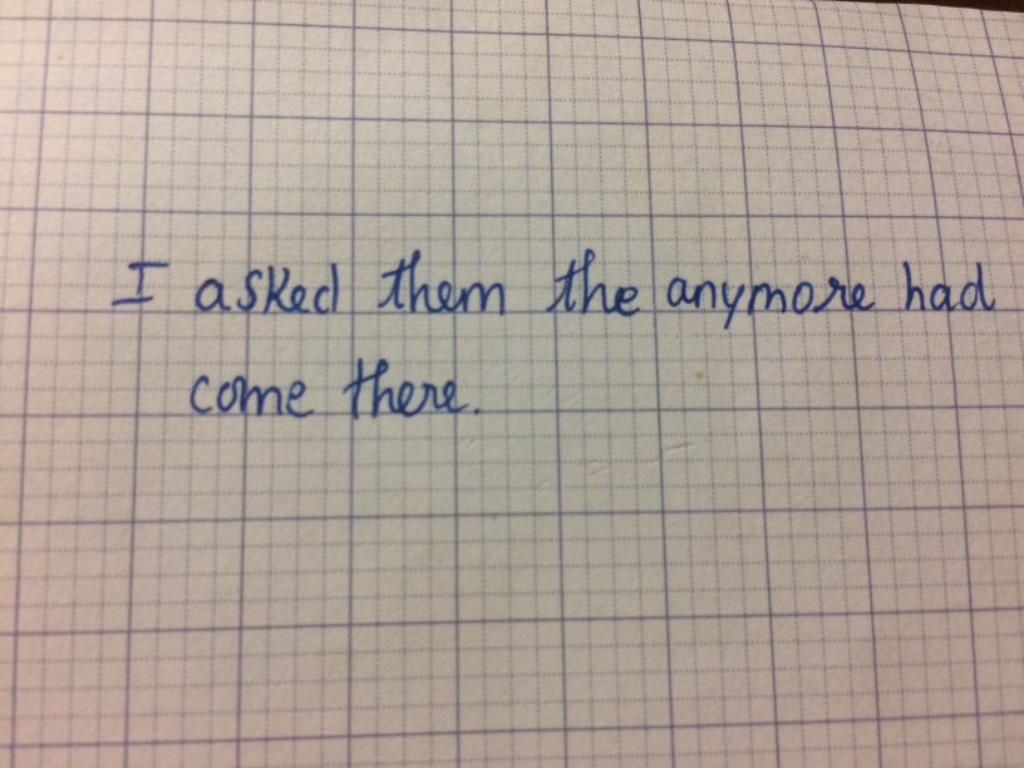 I asked them the anymore had
come there.